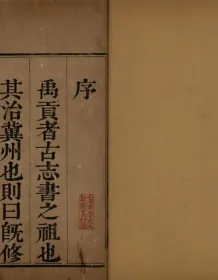 序
禹貢者古志書之祖也
其治冀州也則曰旣修